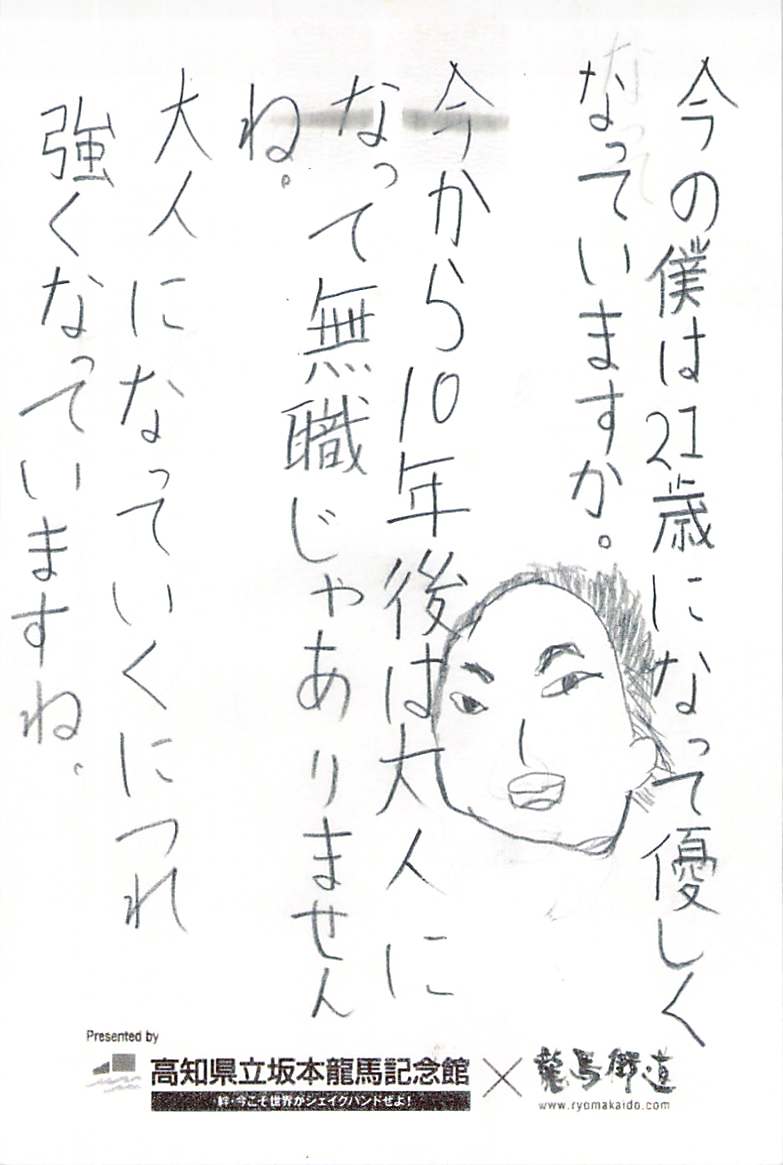 今の僕は21歳になって優しく
なっていますか。
今から10年後は大人に
なって無職じゃありません
ね。
大人になっていくにつれ
強くなっていますね。
Presented by
高知県立坂本龍馬記念館×龍馬街道
絆・今こそ世界がシェイクハンドぜよ!
www.ryomakaido.com